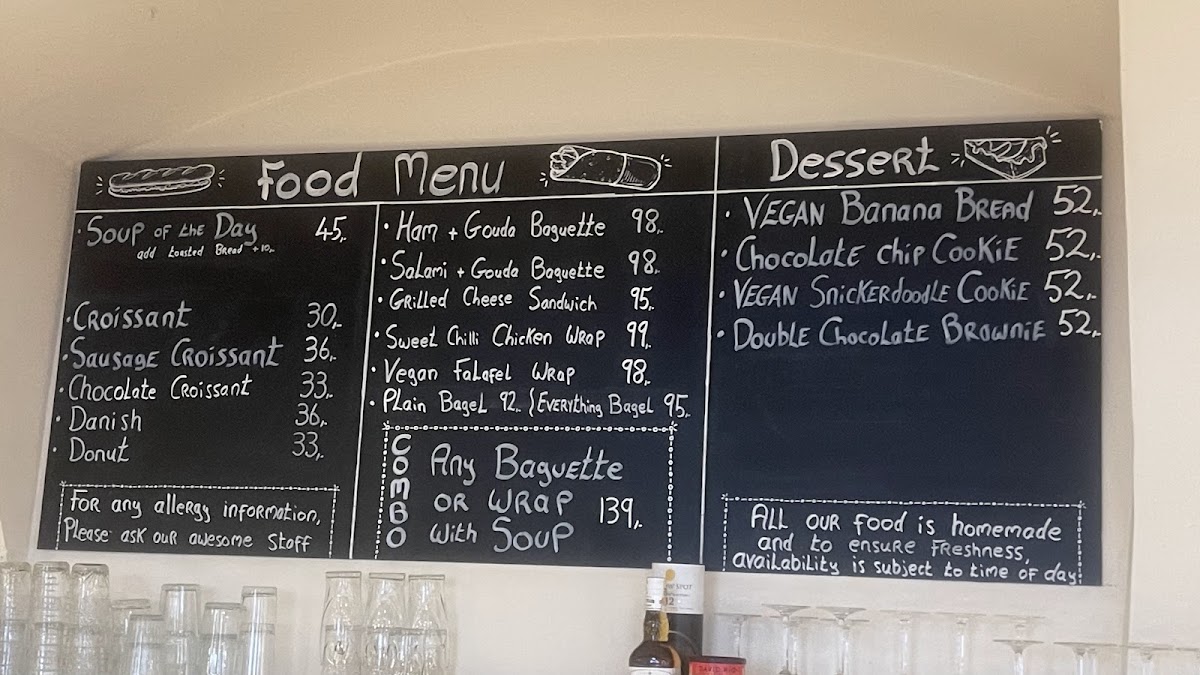 Food Menu
Soup of the Day 45,-
add toasted Bread +10,-
Croissant 30,-
Sausage Croissant 36,-
Chocolate Croissant 33,-
Danish 36,-
Donut 33,-
For any allergy information,
Please ask our awesome staff
Ham + Gouda Baguette 98,-
Salami + Gouda Baguette 98,-
Grilled Cheese Sandwich 95,-
Sweet Chilli Chicken Wrap 99,-
Vegan Falafel Wrap 98,-
Plain Bagel 92,- / Everything Bagel 95,-
COMBO
Any Baguette
or Wrap 139,-
with Soup
Dessert
VEGAN Banana Bread 52,-
Chocolate Chip Cookie 52,-
VEGAN Snickerdoodle Cookie 52,-
Double Chocolate Brownie 52,-
All our food is homemade
and to ensure freshness,
availability is subject to time of day!